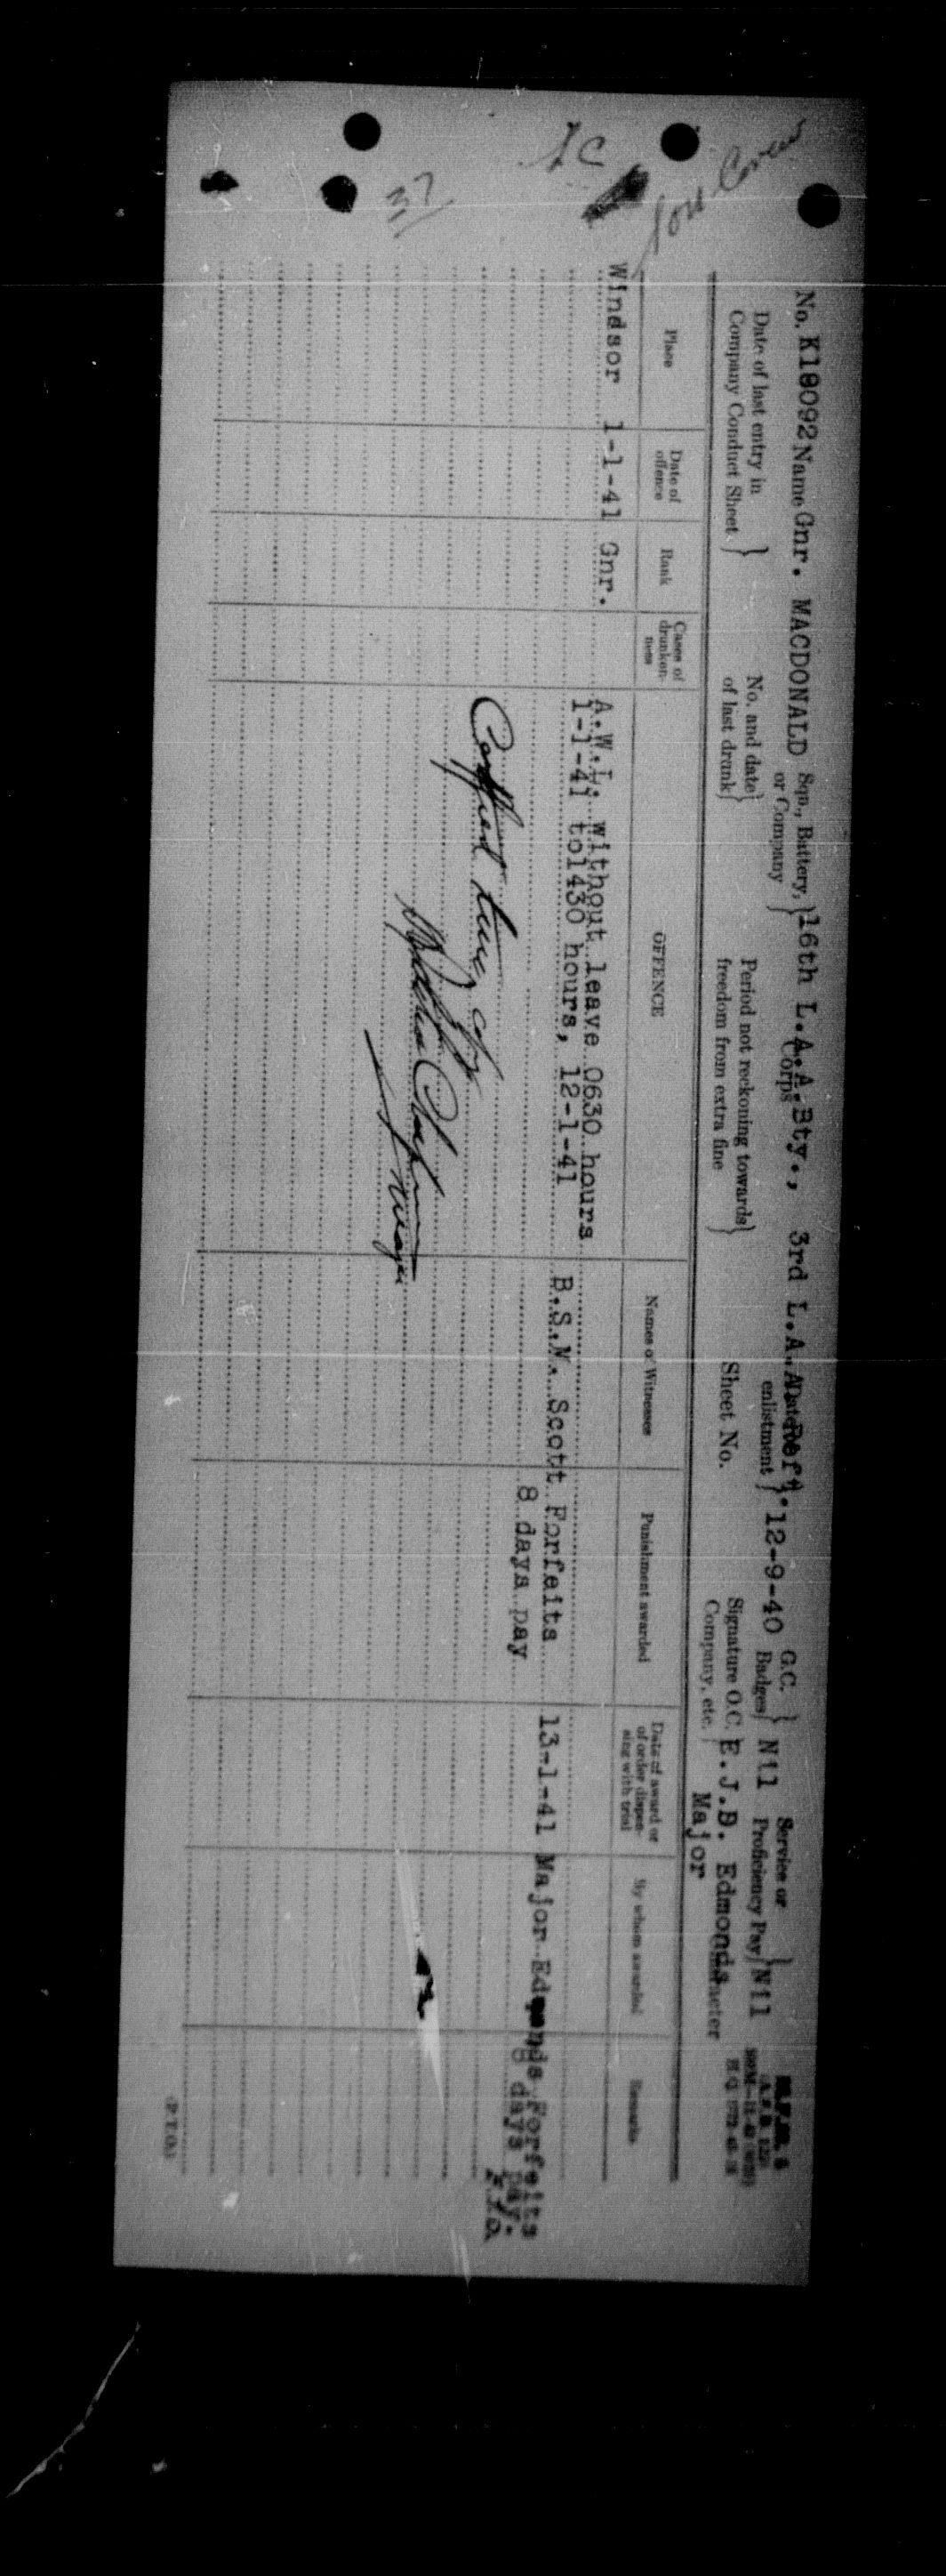 No. K19092 Name Gnr. MACDONALD Sqn., Battery, or Company } 16th L.A.A.Bty., Corps 3rd L.A.A. Reft. Date of enlistment } 12-9-40 G.C. Badges } Nil Service or Proficiency Pay } Nil
Date of last entry in Company Conduct Sheet } No. and date of last drunk } Period not reckoning towards freedom from extra fine } Sheet No. Signature O.C. Company, etc. } E.J.D. Edmonds Character
Major
Place Date of offence Rank Cases of drunkenness OFFENCE Names of Witnesses Punishment awarded Date of award or of order dispensing with trial By whom awarded Remarks
Windsor 1-1-41 Gnr. A.W.L. without leave 0630 hours
1-1-41 to1430 hours, 12-1-41 B.S.M. Scott Forfeits 13-1-41 Major Edmonds Forfeits
8 days pay 8 days pay.
Certified true copy
Major
(P.T.O.)